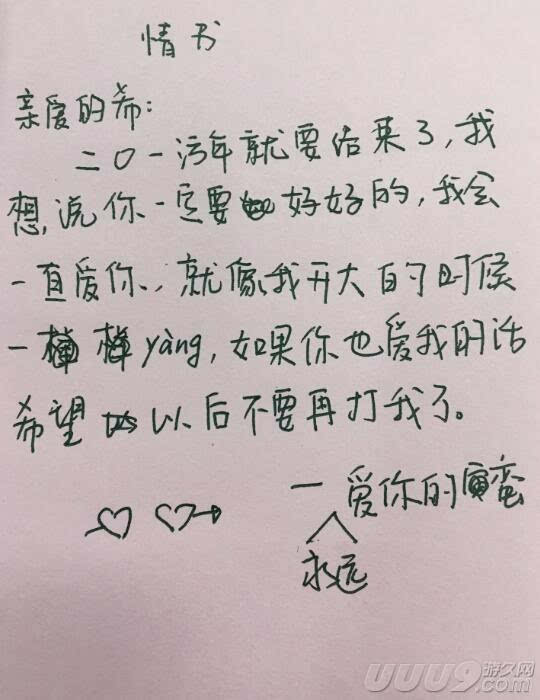 情书
亲爱的希:
二〇一污年就要结来了,我
想,说你一定要好好的,我会
一直爱你、就像我开大的时候
一样yàng,如果你也爱我的话
希望以后不要再打我了。
一永远爱你的蛮
UUU9 游久网